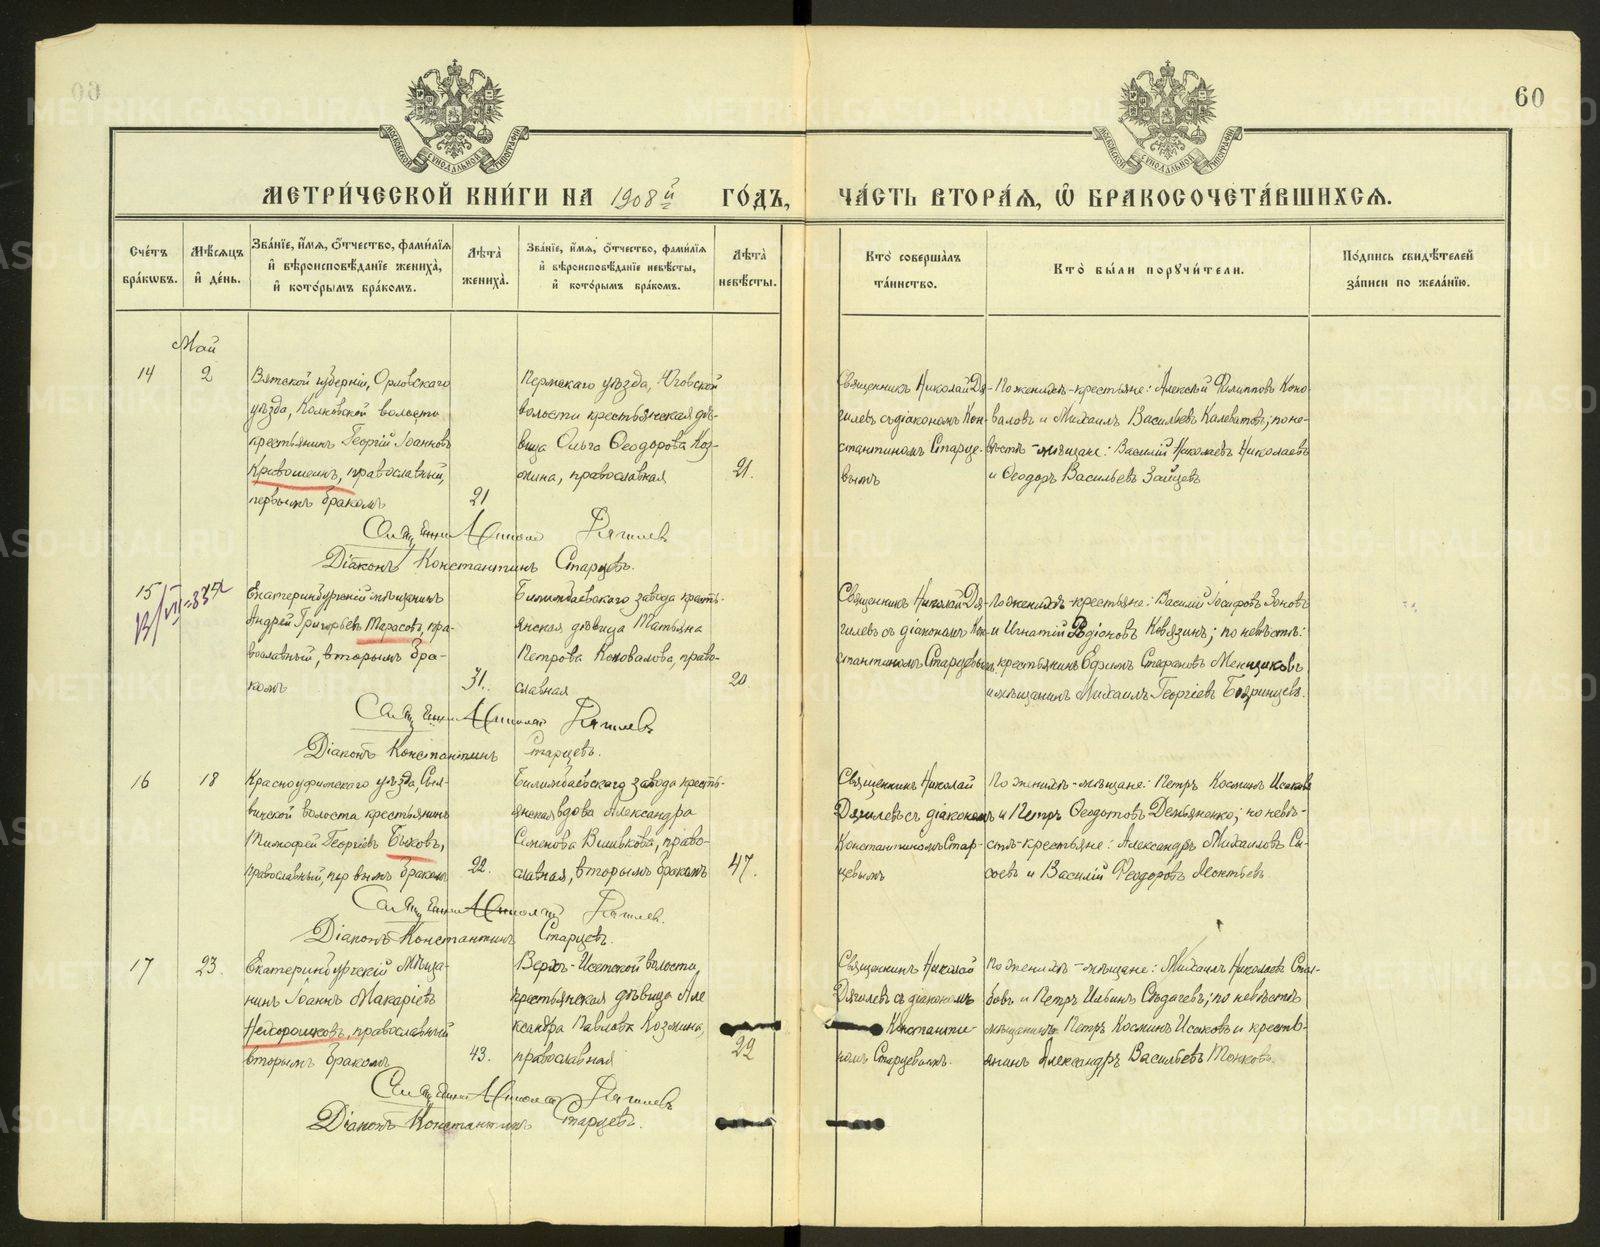 60
МЕТРИ́ЧЕСКОЙ КНИ́ГИ НА 1908й ГО́ДЪ,
ЧА́СТЬ ВТОРА́Я, Ѽ БРАКОСОЧЕТА́ВШИХСЯ.
Сче́тъ бра́кѡвъ.
Мѣ́сяцъ и҆ де́нь.
Зва́нїе, и҆́мя, ѻ҆́тчество, фами́лїя и҆ вѣроисповѣ́данїе жениха̀, и҆ кото́рымъ бра́комъ.
Лѣта̀ жениха̀.
Зва́нїе, и҆́мя, ѻ҆́тчество, фами́лїя и҆ вѣроисповѣ́данїе невѣ́сты, и҆ кото́рымъ бра́комъ.
Лѣта̀ невѣ́сты.
Кто̀ соверша́лъ та́инство.
Кто̀ бы́ли порꙋчи́тели.
По́дпись свидѣ́телей за́писи по жела́нїю.
Май
14
2
Вятской губерніи, Орловскаго
уѣзда, волости
крестьянинъ Георгій Іоанновъ
Кривошеинъ, православный,
первымъ бракомъ
21
Пермскаго уѣзда, Юговской
волости крестьянская дѣ-
вица Ольга Ѳеодорова Коз-
мина, православная
21.
Священникъ Николай Дя-
гилевъ съ діакономъ Кон-
стантиномъ Старце-
вымъ
По женихѣ-крестьяне: Алексѣй Филипповъ Коно-
валовъ и Михаилъ Васильевъ Калеватовъ; по не-
вѣстѣ-мѣщане: Василій Николаевъ Николаевъ
и Ѳеодоръ Васильевъ Зайцевъ
Священникъ Николай Дягилевъ
Діаконъ Константинъ Старцевъ.
15
Екатеринбургскій мѣщанинъ
Андрей Григорьевъ Тарасовъ, пра-
вославный, вторымъ бра-
комъ
31.
Билимбаевскаго завода кресть-
янская дѣвица Татьяна
Петрова Коновалова, право-
славная
20
Священникъ Николай Дя-
гилевъ съ діакономъ Кон-
стантиномъ Старцевымъ
По женихѣ-крестьяне: Василій Іосифовъ Зоновъ
и Игнатій Родіоновъ Ковязинъ; по невѣстѣ:
крестьянинъ Ефимъ Стефановъ Меньщиковъ
и мѣщанинъ Михаилъ Георгіевъ Бояринцевъ.
Священникъ Николай Дягилевъ
Діаконъ Константинъ Старцевъ.
16
18
Красноуфимскаго уѣзда, Сыл-
винской волости крестьянинъ
Тимофей Георгіевъ Быковъ,
православный, первымъ бракомъ
22.
Билимбаевскаго завода кресть-
янская вдова Александра
Семенова Вшивкова, право-
славная, вторымъ бракомъ
47.
Священникъ Николай
Дягилевъ съ діакономъ
Константиномъ Стар-
цевымъ
По женихѣ-мѣщане: Петръ Космин Исаковъ
и Петръ Ѳеодотовъ Демьяненко; по невѣ-
стѣ-крестьяне: Александръ Михаиловъ Сы-
соевъ и Василій Ѳеодоровъ Леонтьевъ
Священникъ Николай Дягилев.
Діаконъ Константинъ Старцевъ.
17
23.
Екатеринбургскій Мѣща-
нинъ Іоаннъ Макаріевъ
Нехорошковъ, православный
вторымъ бракомъ
43.
Верхъ-Исетской волости,
крестьянская дѣвица Але
ксандра Павлова Козмина,
православная
22
Священникъ Николай
Дягилевъ съ діакономъ
Константи-
номъ Старцевымъ.
По женихѣ-мѣщане: Михаилъ Николаевъ Стол-
бовъ и Петръ Ильинъ Сѣдачевъ; по невѣстѣ
мѣщанинъ Петръ Косминъ Исаковъ и кресть-
янинъ Александръ Васильевъ Тонковъ.
Священникъ Николай Дягилевъ
Діаконъ Константинъ Старцевъ.